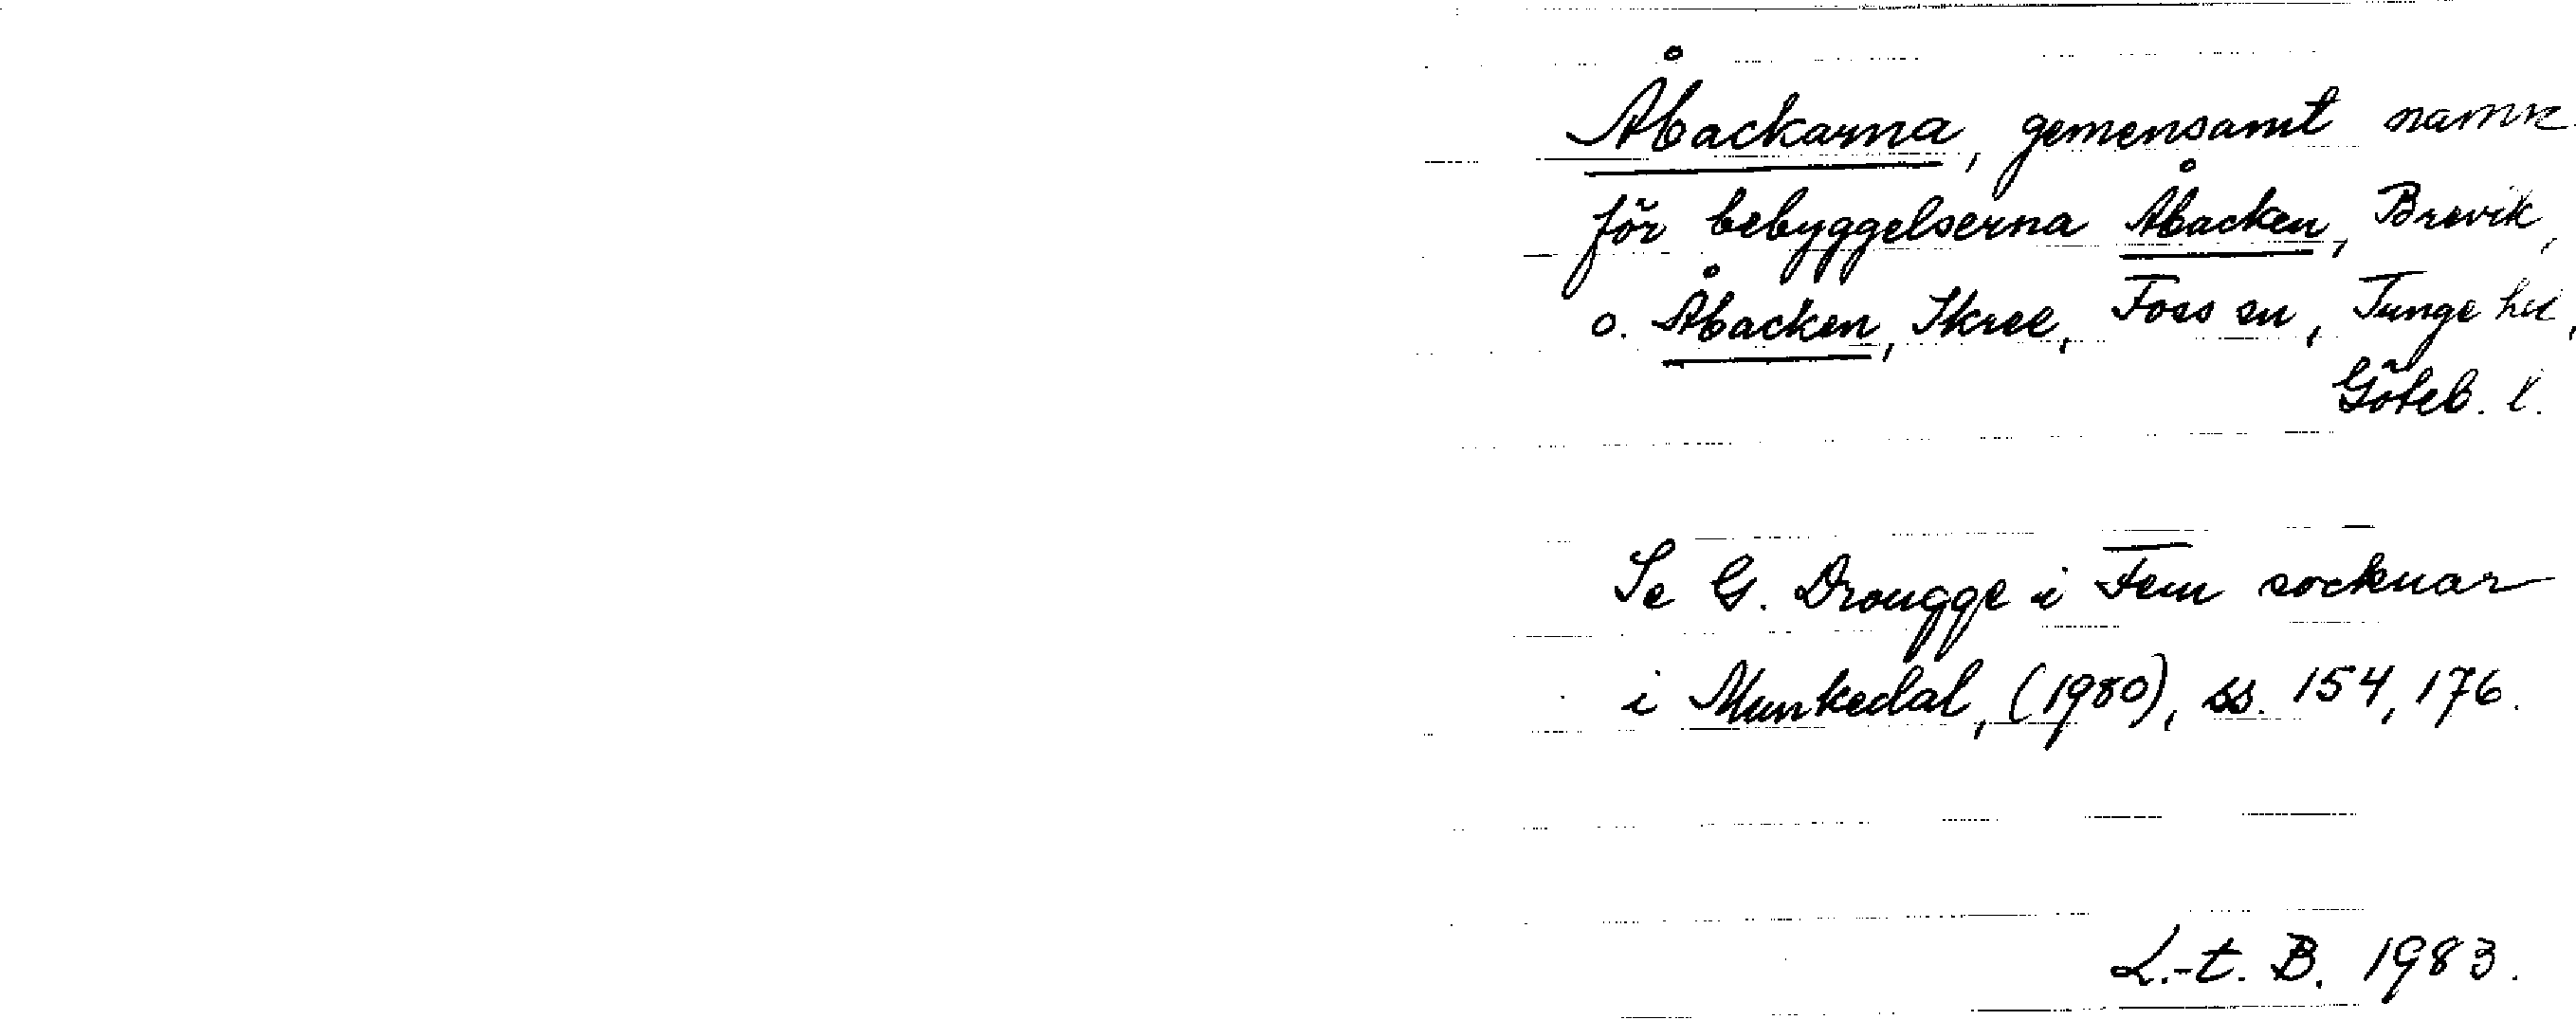 Åbackarna, gemensamt namn
för bebyggelserna Åbacken, Brevik,
o. Åbacken, Skree, Foss sn, Tunge hd,
Göteb. l.
Se G. Drougge i Fem socknar
i Munkedal, (1980), ss. 154, 176.
L.-t. B. 1983.